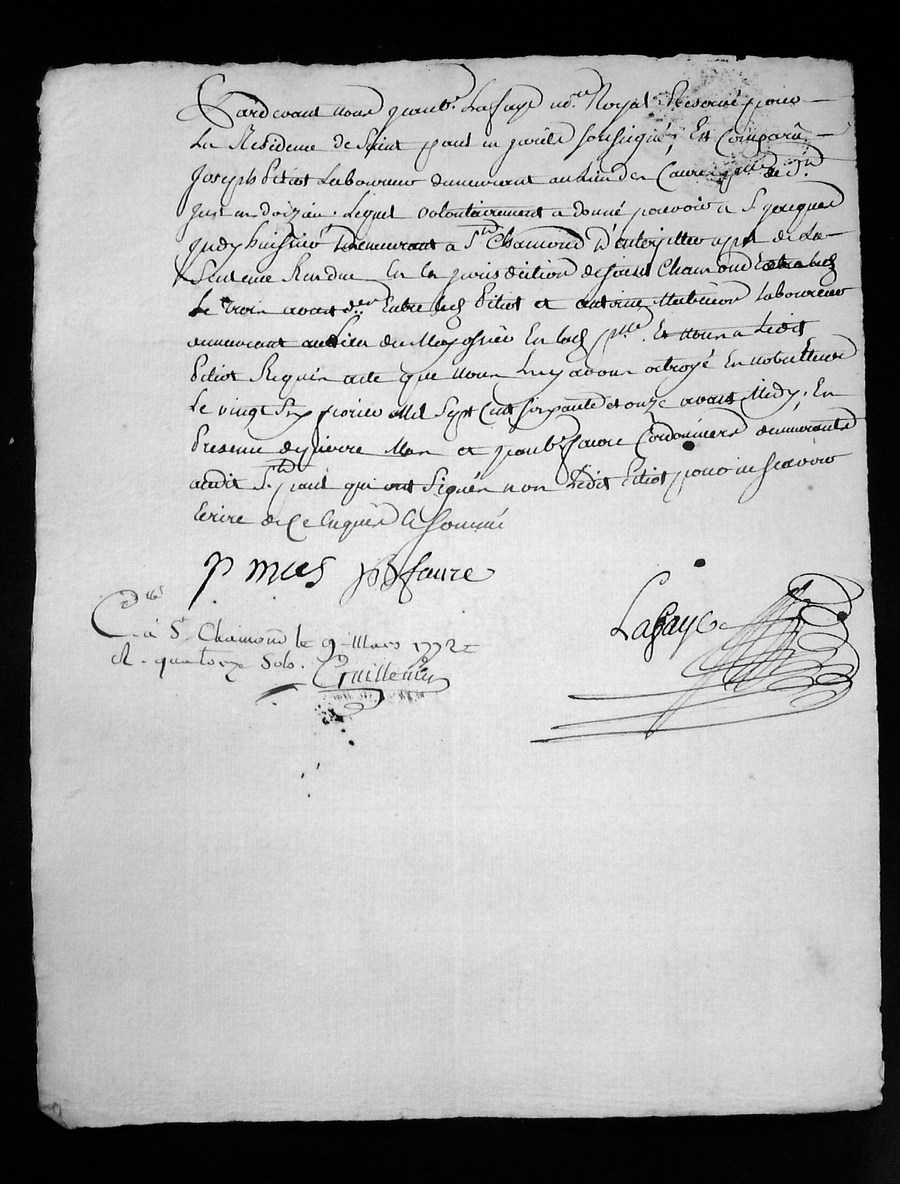 Pardevant nous jean b.te Lafaye no.re Royal Reservé pour
La Residence de Saint paul en jarêts soussigné, Est Comparû
Joseph Pitiot Laboureur demeurant au Lieu des p.sse de S.t
just en doizieu. Lequel volontairement a donné pouvoir a S. jacques
huissier demeurant a S.t Chamond D'interjetter appel de La
Sentence Rendue En la jurisdiction de Saint Chamond
Le trois avant d.er Entre led. Pitiot et antoine Laboureur
demeurant au Lieu du En lad. p.sse. Et nous a Ledit
Pitiot Requis acte que nous Luy avons octroyé En notre Etude
Le vingt Six fevrier Mil Sept Cent soixante et onze avant Midy, En
Presence de pierre Mas et jean b.te faure Cordonniers demeurants
audit S.t paul qui ont Signés non Ledit Pitiot pour ne sçavoir
Ecrire de Ce Enquis Et sommé
P mas jb faure
Lafaye
C à S.t Chamond le 9 Mars 1772
R. quatorze Sols. Guillemin